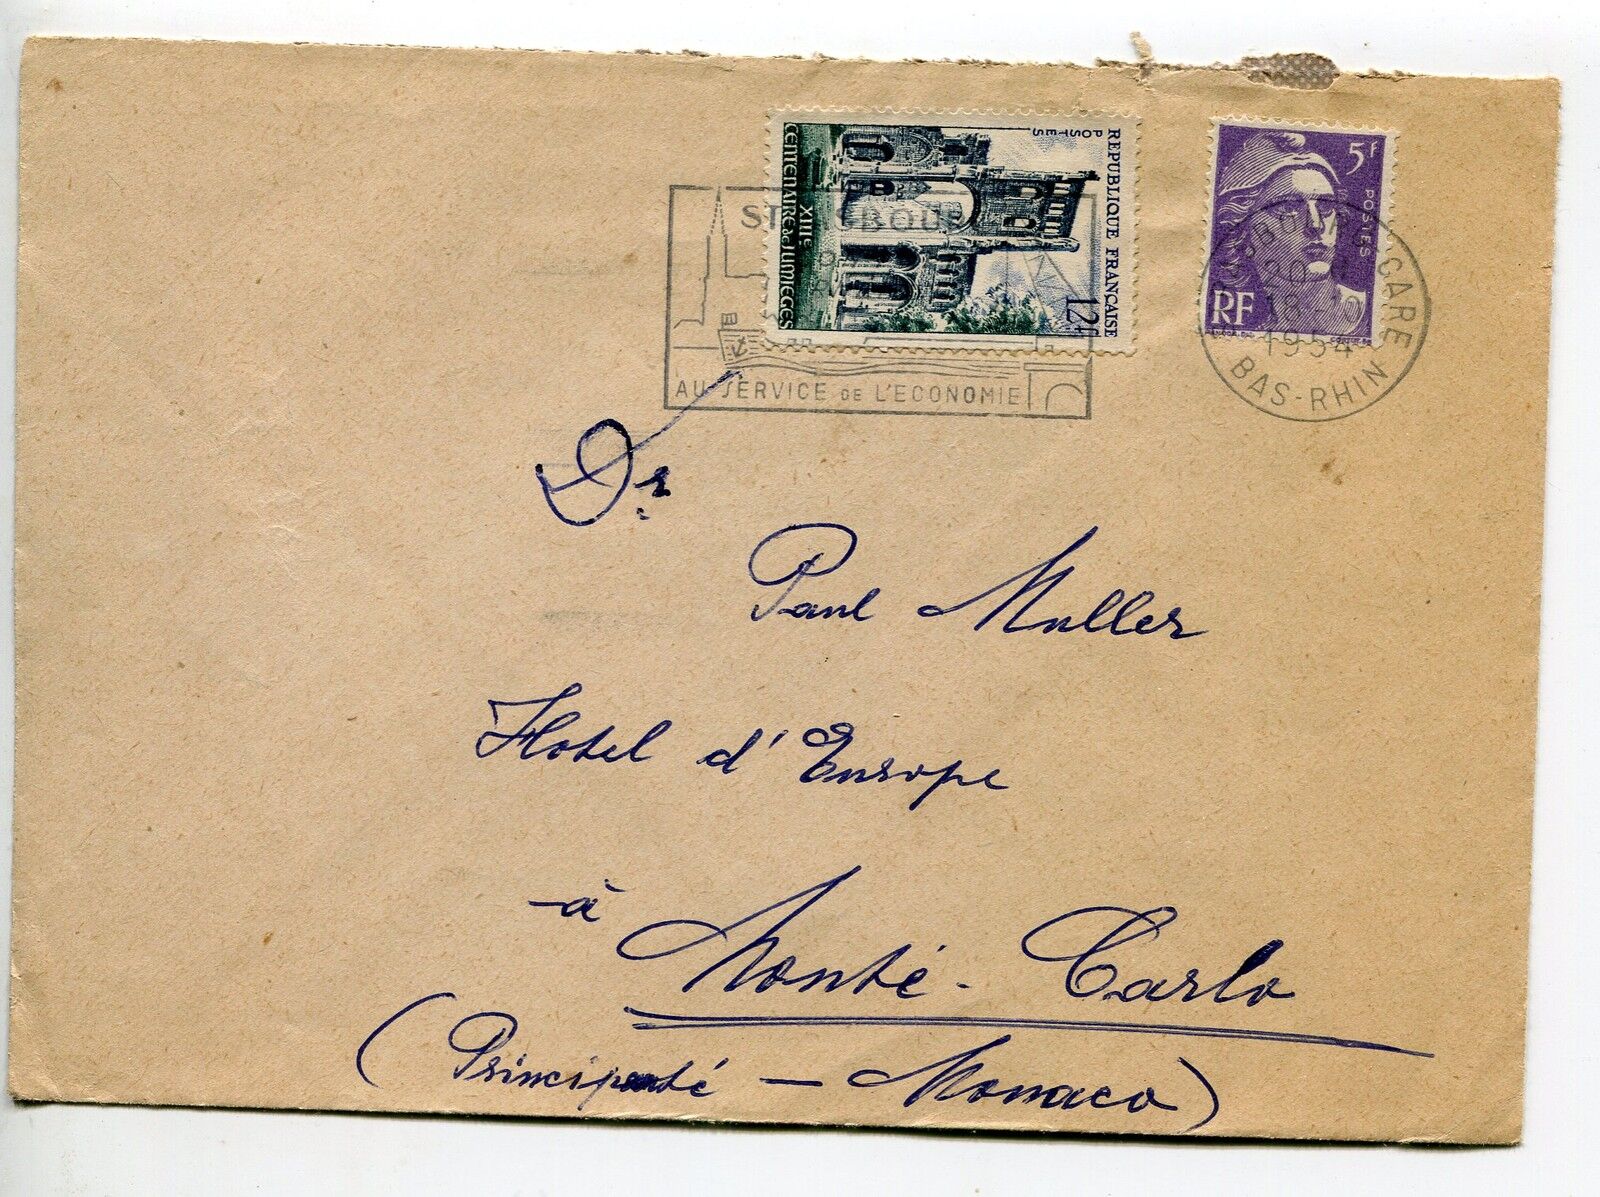 REPUBLIQUE FRANÇAISE
POSTES
12f
XIIIe
CENTENAIRE de JUMIEGES
5f
POSTES
RF
STRASBOURG
AU SERVICE DE L'ECONOMIE
STRASBOURG GARE
18-10
1954
BAS-RHIN
Dr
Paul Muller
Hotel d'Europe
à
Monté-Carlo
(Principauté - Monaco)